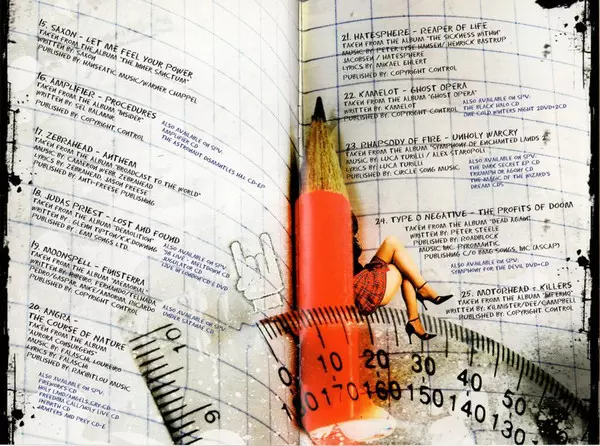 15. SAXON - LET ME FEEL YOUR POWER
TAKEN FROM THE ALBUM "THE INNER SANCTUM"
WRITTEN BY: SAXON
PUBLISHED BY: HANSEATIC MUSIC/WARNER CHAPPEL
16. AMPLIFIER - PROCEDURES
TAKEN FROM THE ALBUM "INSIDER"
WRITTEN BY: SEL BALAMIR
PUBLISHED BY: COPYRIGHT CONTROL
ALSO AVAILABLE ON SPV:
AMPLIFIER CD
THE ASTRONAUT DISMANTLES HAL CD-EP
17. ZEBRAHEAD - ANTHEM
TAKEN FROM THE ALBUM "BROADCAST TO THE WORLD"
MUSIC BY: CAMERON WEBB, ZEBRAHEAD
LYRICS BY: ZEBRAHEAD, JASON FREESE
PUBLISHED BY: ANTI-FREESE PUBLISHING
18. JUDAS PRIEST - LOST AND FOUND
TAKEN FROM THE ALBUM "DEMOLITION"
WRITTEN BY: GLENN TIPTON/K.K DOWNING
PUBLISHED BY: EMI SONGS LTD.
ALSO AVAILABLE ON SPV:
'98 LIVE - MELTDOWN CD
JUGULATOR CD
LIVE IN LONDON CD & DVD
19. MOONSPELL - FINISTERRA
TAKEN FROM THE ALBUM "MEMORIAL"
WRITTEN BY: RIBEIRO, FERNANDO/
PUBLISHED BY: COPYRIGHT CONTROL
ALSO AVAILABLE ON SPV:
UNDER SATANAE CD
20. ANGRA -
THE COURSE OF NATURE
TAKEN FROM THE ALBUM
"AURORA CONSURGENS"
MUSIC BY: FALASCHI, LOUREIRO
LYRICS BY: FALASCHI
PUBLISHED BY: RAKIBITLOU MUSIC
ALSO AVAILABLE ON SPV:
FIREWORKS CD
HOLY LAND/ANGELS CRY CD
FREEDOM CALL/HOLY LIVE CD
REBIRTH CD
HUNTERS AND PREY CD-E
21. HATESPHERE - REAPER OF LIFE
TAKEN FROM THE ALBUM "THE SICKNESS WITHIN"
MUSIC BY: PETER LYSE HANSEN/ HENRICK BASTRUP
JACOBSEN / HATESPHERE
LYRICS BY: MIKAEL EHLERT
PUBLISHED BY: COPYRIGHT CONTROL
22. KAMELOT - GHOST OPERA
TAKEN FROM THE ALBUM "GHOST OPERA"
WRITTEN BY: KAMELOT
PUBLISHED BY: COPYRIGHT CONTROL
ALSO AVAILABLE ON SPV:
THE BLACK HALO CD
ONE COLD WINTERS NIGHT 2DVD+2CD
23. RHAPSODY OF FIRE - UNHOLY WARCRY
TAKEN FROM THE ALBUM "SYMPHONY OF ENCHANTED LANDS
MUSIC BY: LUCA TURILLI / ALEX STAROPOLI
LYRICS BY: LUCA TURILLI
PUBLISHED BY: CIRCLE SONG MUSIC
ALSO AVAILABLE ON SPV:
THE DARK SECRET EP CD
TRIUMPH OR AGONY CD
THE MAGIC OF THE WIZARD'S
DREAM CDS
24. TYPE O NEGATIVE - THE PROFITS OF DOOM
TAKEN FROM THE ALBUM "DEAD AGAIN"
WRITTEN BY: PETER STEELE
PUBLISHED BY: ROADBLOCK
MUSIC INC. PROGMATIC
PUBLISHING C/O BMG SONGS, INC (ASCAP)
ALSO AVAILABLE ON SPV:
SYMPHONY FOR THE DEVIL DVD+CD
25. MOTÖRHEAD - KILLERS
TAKEN FROM THE ALBUM "INFERNO"
WRITTEN BY: KILMISTER/DEE/CAMPBELL
PUBLISHED BY: COPYRIGHT CONTROL
0 10 20 30 40 50
180 170 160 150 140 130
10
9